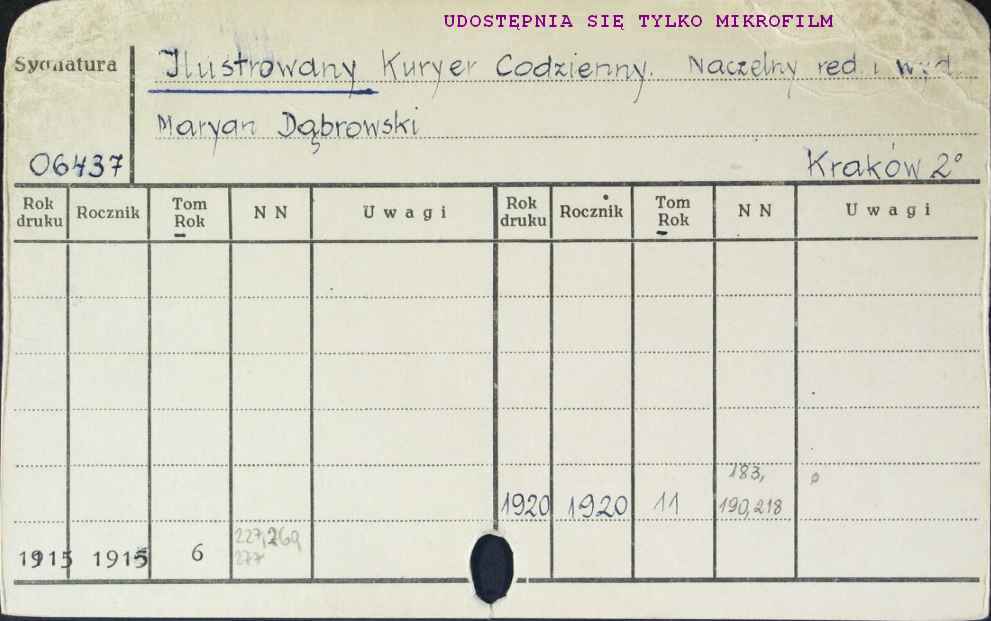 UDOSTĘPNIA SIĘ TYLKO MIKROFILM
Sygnatura
Ilustrowany Kuryer Codzienny. Naczelny red. i wyd.
Maryan Dąbrowski
06437
Kraków 2°
Rok druku Rocznik Tom Rok NN Uwagi Rok druku Rocznik Tom Rok NN Uwagi
183,
1920 1920 11 190,218
227,269,
1915 1915 6 277